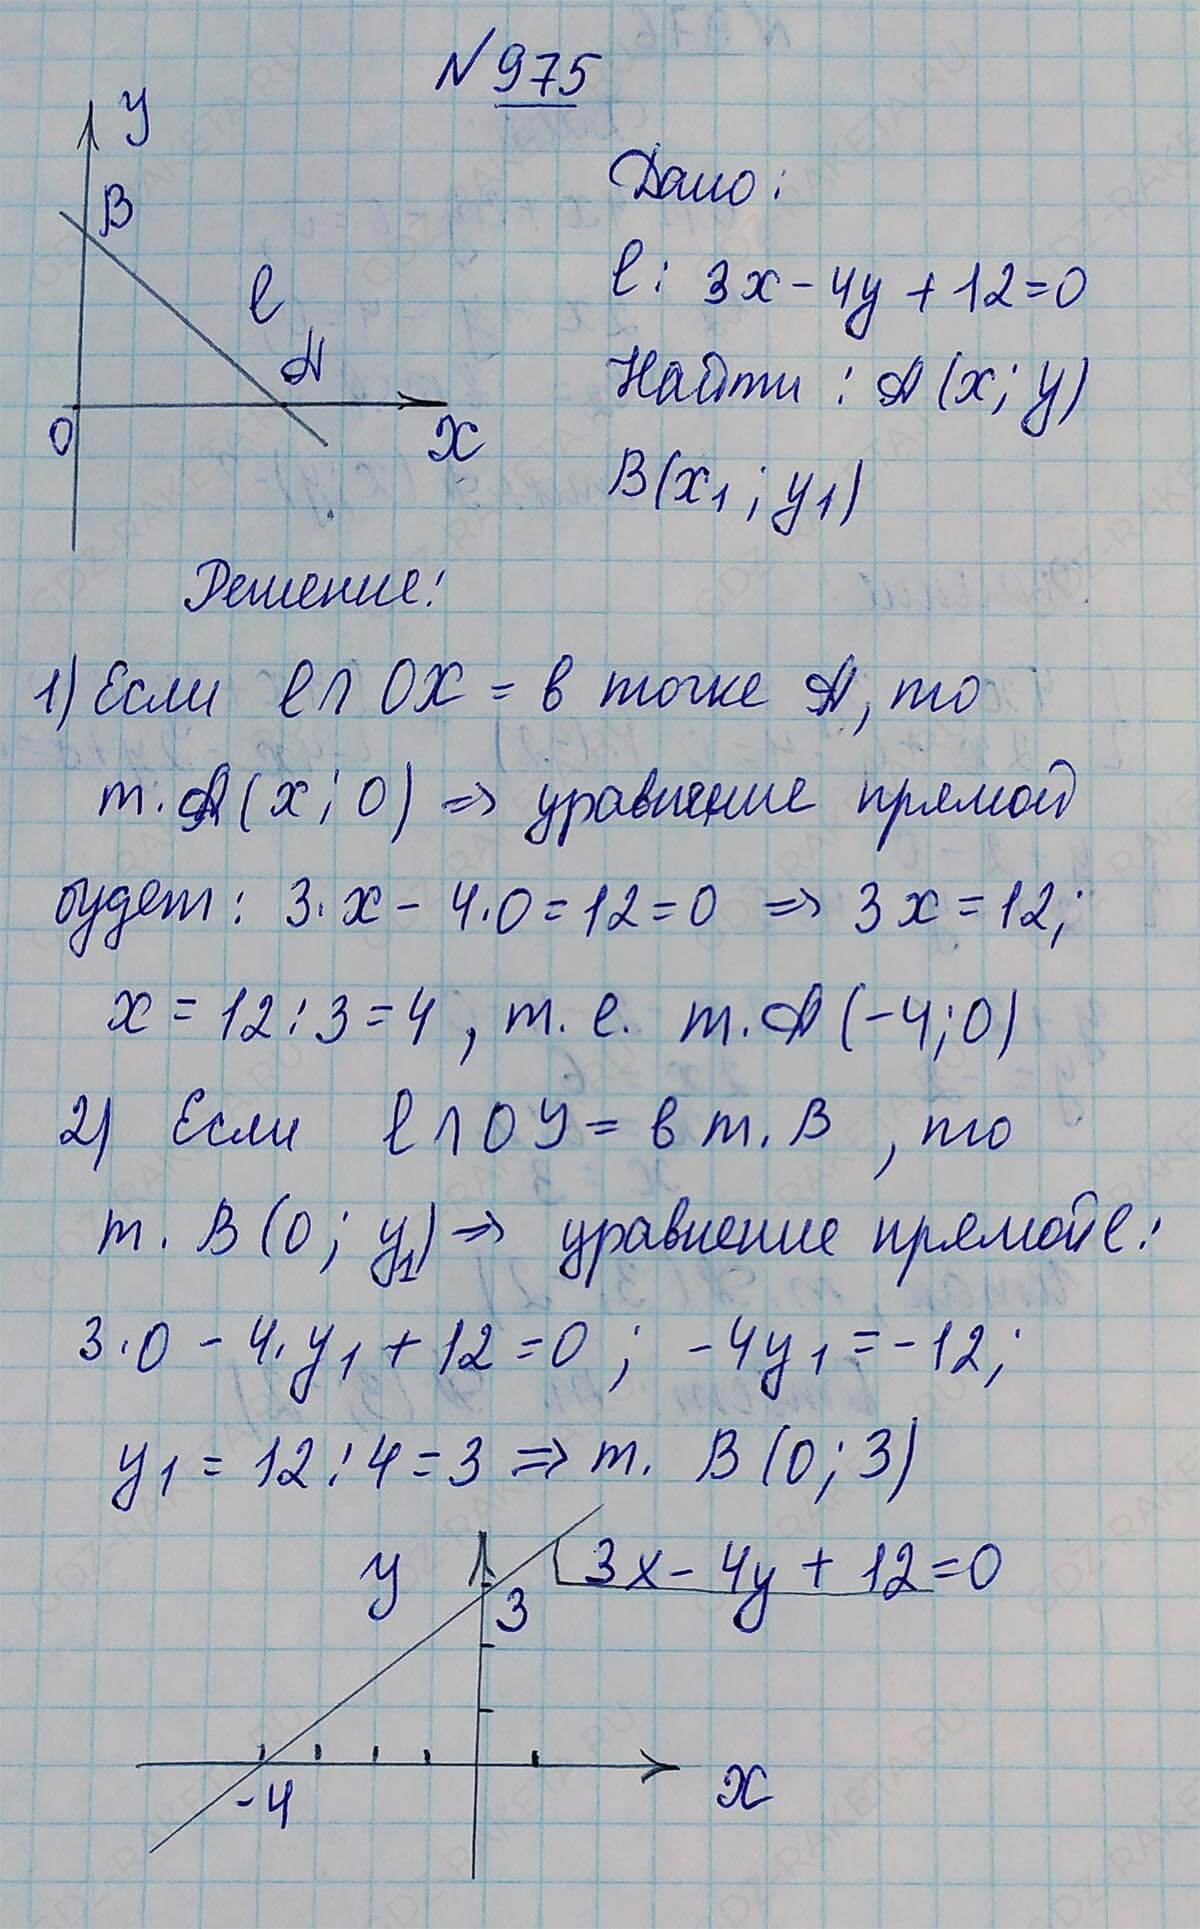 N 975
y
B
l
A
0
x
Дано:
l: 3x - 4y + 12 = 0
Найти: A(x; y)
B(x₁; y₁)
Решение:
1) Если l ∩ OX = в точке A, то
т. A(x; 0) => уравнение прямой
будет: 3·x - 4·0 = 12 = 0 => 3x = 12;
x = 12 : 3 = 4, т. е. т. A(-4; 0)
2) Если l ∩ OY = в т. B, то
т. B(0; y₁) => уравнение прямой l:
3·0 - 4·y₁ + 12 = 0; -4y₁ = -12;
y₁ = 12 : 4 = 3 => т. B(0; 3)
y
3x - 4y + 12 = 0
3
-4
x
GDZ-RAKETA.RU